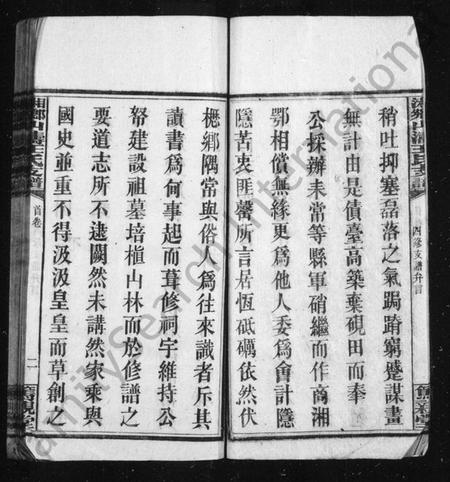 稍吐抑塞磊落之氣跼蹐窮蹙謀畫
無計由是債臺高築棄硯田而奉
公採辦未當等縣軍硝繼而作商湘
鄂相償無緣更爲他人委爲會計隱
隱苦衷匪罄所言居恆砥礪依然伏
櫪鄉隅當與俗人爲往來識者斥其
讀書爲何事起而葺修祠宇維持公
帑建設祖墓培植山林而於修譜之
要道志所不逮闕然未講然家乘與
國史並重不得汲汲皇皇而草創之
四修支譜弁言
首卷
二
FamilySearch International